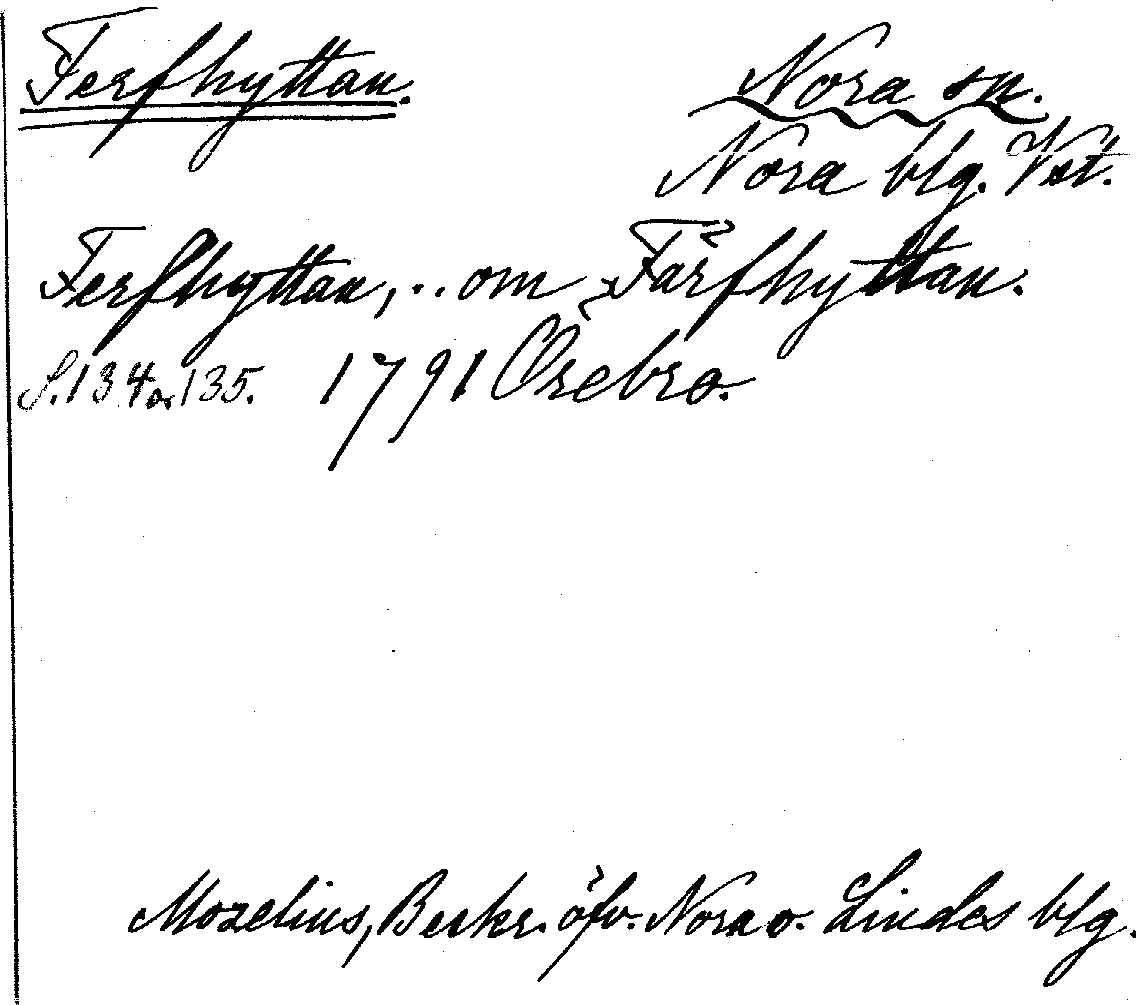 Ferfhyttan.
Nora sn.
Nora blg. Vst.
Ferfhyttan, .. om Färfhyttan.
S. 134 o. 135. 1791 Örebro.
Mozelius, Beskr. öfv. Nora o. Lindes blg.